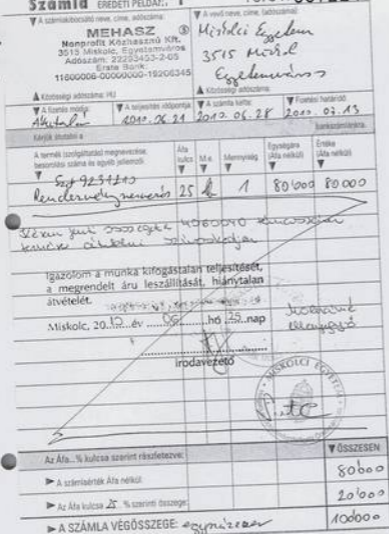 Számla EREDETI PÉLDÁNY
A számlakibocsátó neve, címe, adószáma:
A vevő neve, címe, (adószáma):
MEHASZ
Nonprofit Közhasznú Kft.
3515 Miskolc, Egyetemváros
Adószám: 22203453-2-05
Erste Bank:
11600006-00000000-19206345
Miskolci Egyetem
3515 Miskolc
Egyetemváros
A Közösségi adószáma: HU
Közösségi adószáma:
A fizetés módja:
A teljesítés időpontja:
A számla kelte:
Fizetési határidő:
Átutalás
2010. 06. 21
2010. 06. 28
2010. 07. 13
Kérjük átutalni a
bankszámlánkra.
A termék (szolgáltatás) megnevezése, besorolási száma és egyéb jellemzői
Áfa kulcs
M.e.
Mennyiség
Egységára (Áfa nélkül)
Értéke (Áfa nélkül)
Szj 9231210
Rendezvényszervezés 25 1 80'000 80 000
Igazolom a munka kifogástalan teljesítését,
a megrendelt áru leszállítását, hiánytalan
átvételét.
Miskolc, 2010. év 06. hó 25. nap
irodavezető
MISKOLCI EGYETEM
Az Áfa... % kulcsa szerint részletezve:
ÖSSZESEN
A számlaérték Áfa nélkül:
80'000
Az Áfa kulcsa 25 % szerinti összege:
20'000
A SZÁMLA VÉGÖSSZEGE: egyszázezer
100000